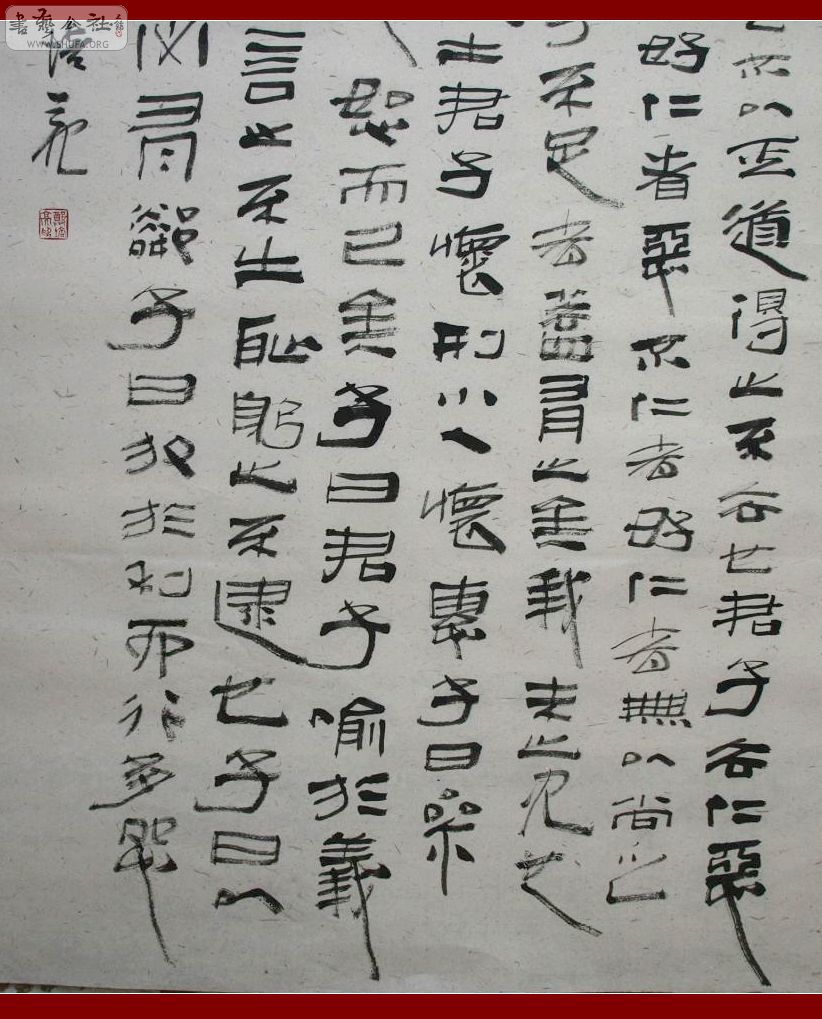 不以正道得之不去也君子去仁惡
好仁者惡不仁者好仁者無以尚之
不足者蓋有之矣我未之見也
土君子懷刑小人懷惠子曰參
恕而已矣子曰君子喻於義
言之不出恥躬之不逮也子曰以
必有鄰子曰放於利而行多怨
書齋公社
WWW.SHUFA.ORG